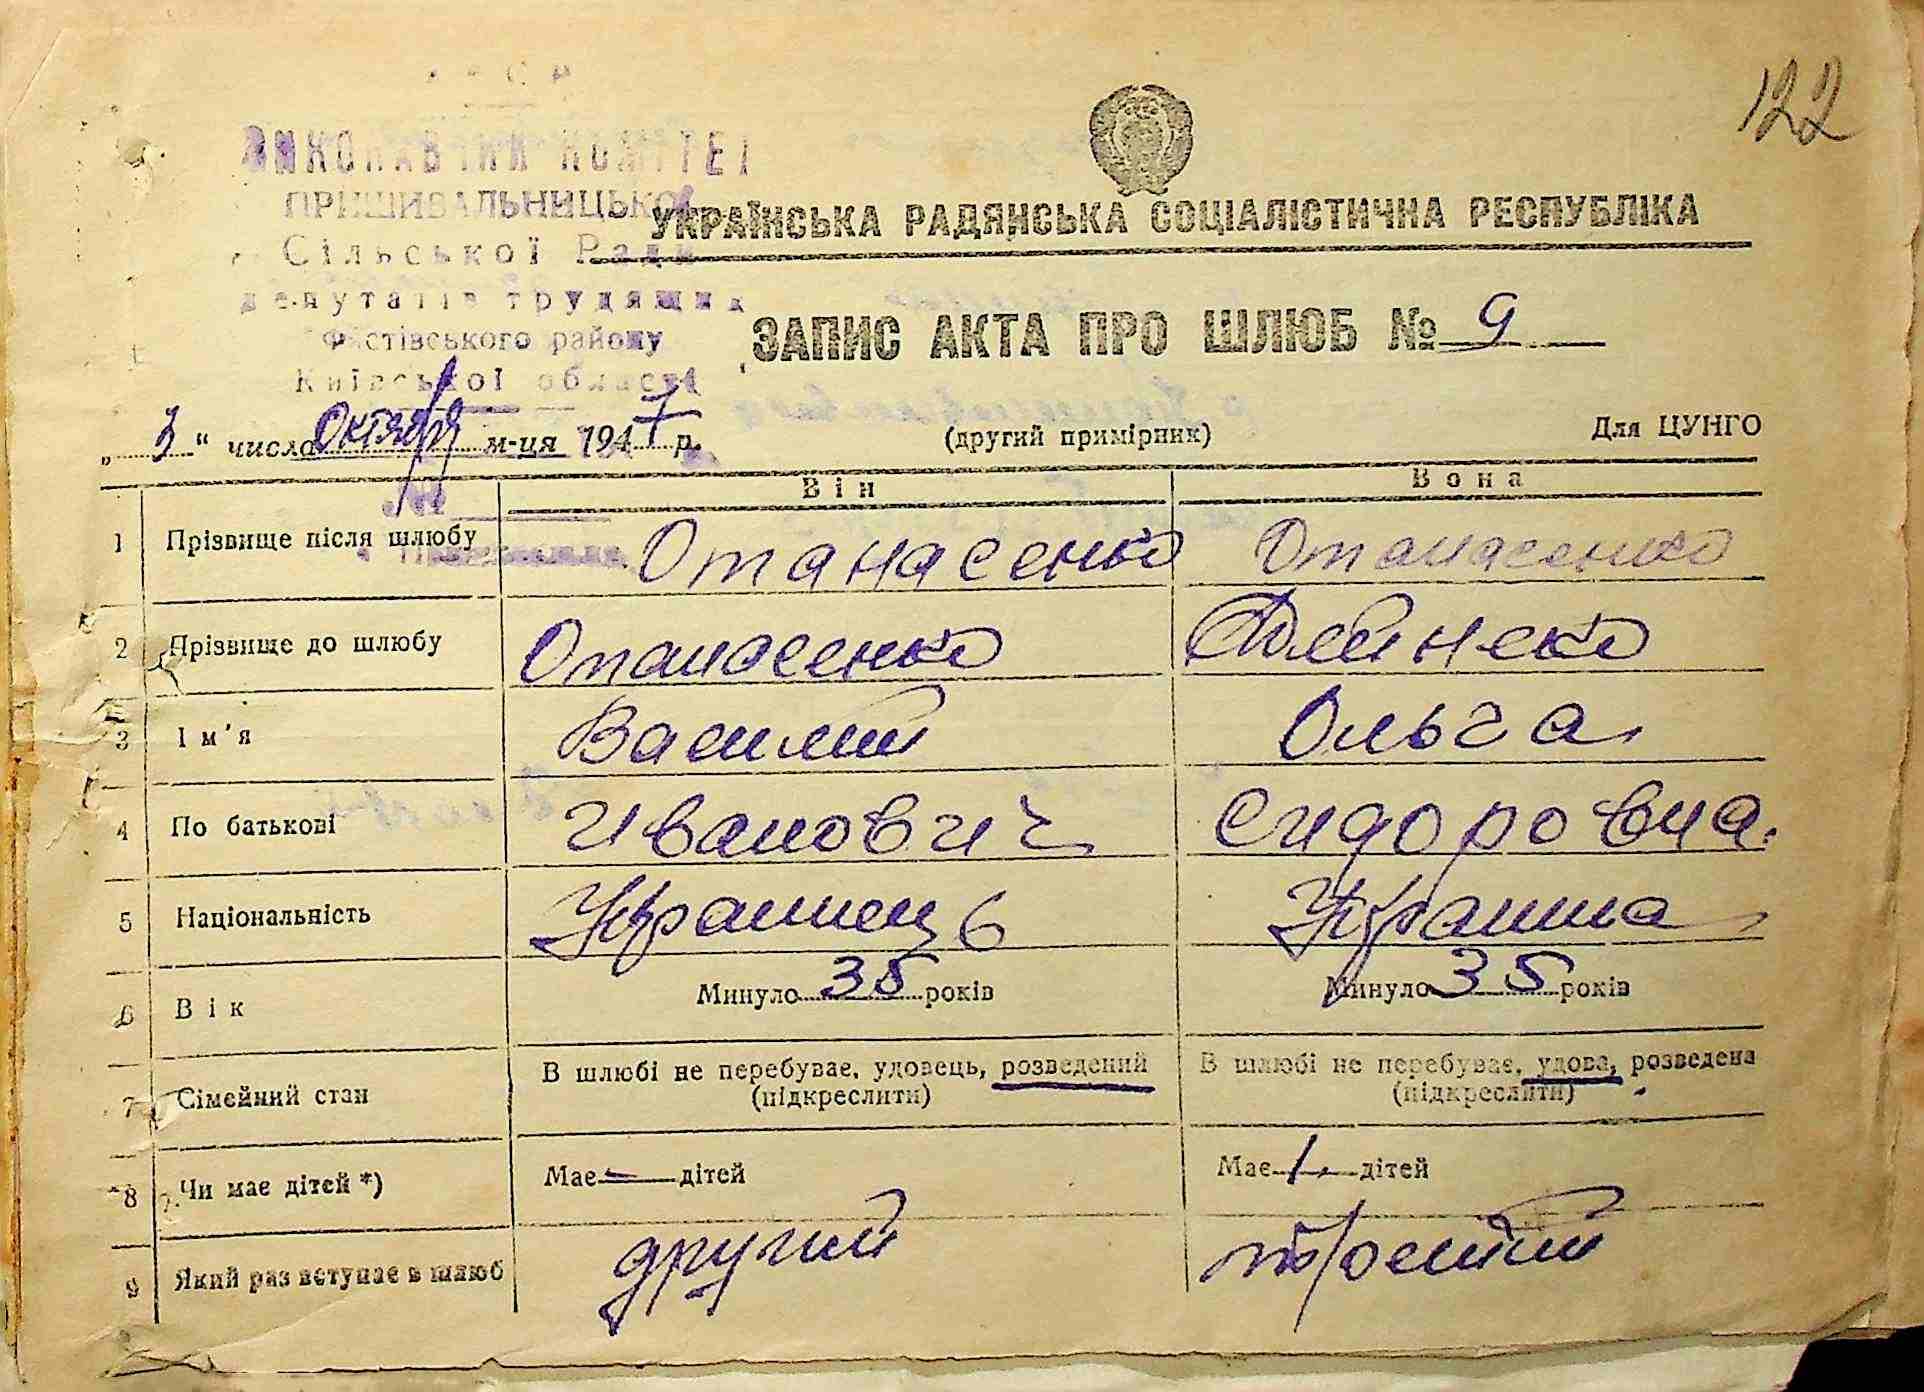 122
ВИКОНАВЧИЙ КОМІТЕТ
ПРИШИВАЛЬНИЦЬКОЇ
Сільської Ради
депутатів трудящих
Фастівського району
Київської області
УКРАЇНСЬКА РАДЯНСЬКА СОЦІАЛІСТИЧНА РЕСПУБЛІКА
ЗАПИС АКТА ПРО ШЛЮБ № 9
„3“ числа Октября м-ця 1947 р.
(другий примірник)
Для ЦУНГО
Він Вона
1 Прізвище після шлюбу Отанасенко Отанасенко
2 Прізвище до шлюбу Опанасенко
3 Ім'я Василий Ольга
4 По батькові Иванович Сидоровна
5 Національність Украинец Украинка
6 Вік Минуло 35 років Минуло 35 років
7 Сімейний стан В шлюбі не перебуває, удовець, розведений В шлюбі не перебуває, удова, розведена
(підкреслити) (підкреслити)
8 Чи має дітей *) Має — дітей Має 1 дітей
9 Який раз вступає в шлюб другий третий